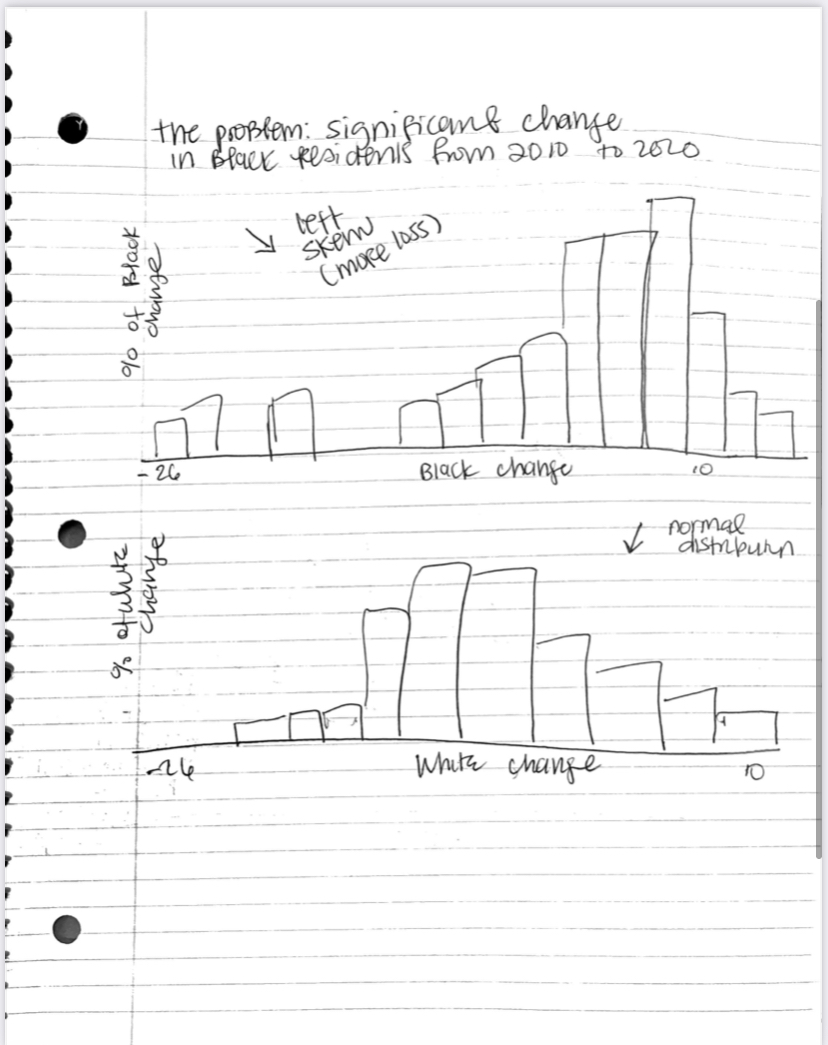 the problem: significant change
in Black residents from 2010 to 2020
left
skew
(more loss)
% of Black
change
-26
Black change
10
normal
distributun
% of White
change
-26
White change
10